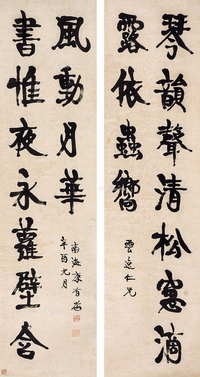 琴韻聲清松窻滴
露依蟲嚮
仁兄
書惟夜永蘿壁含
風動月華
辛酉月
南海康有為